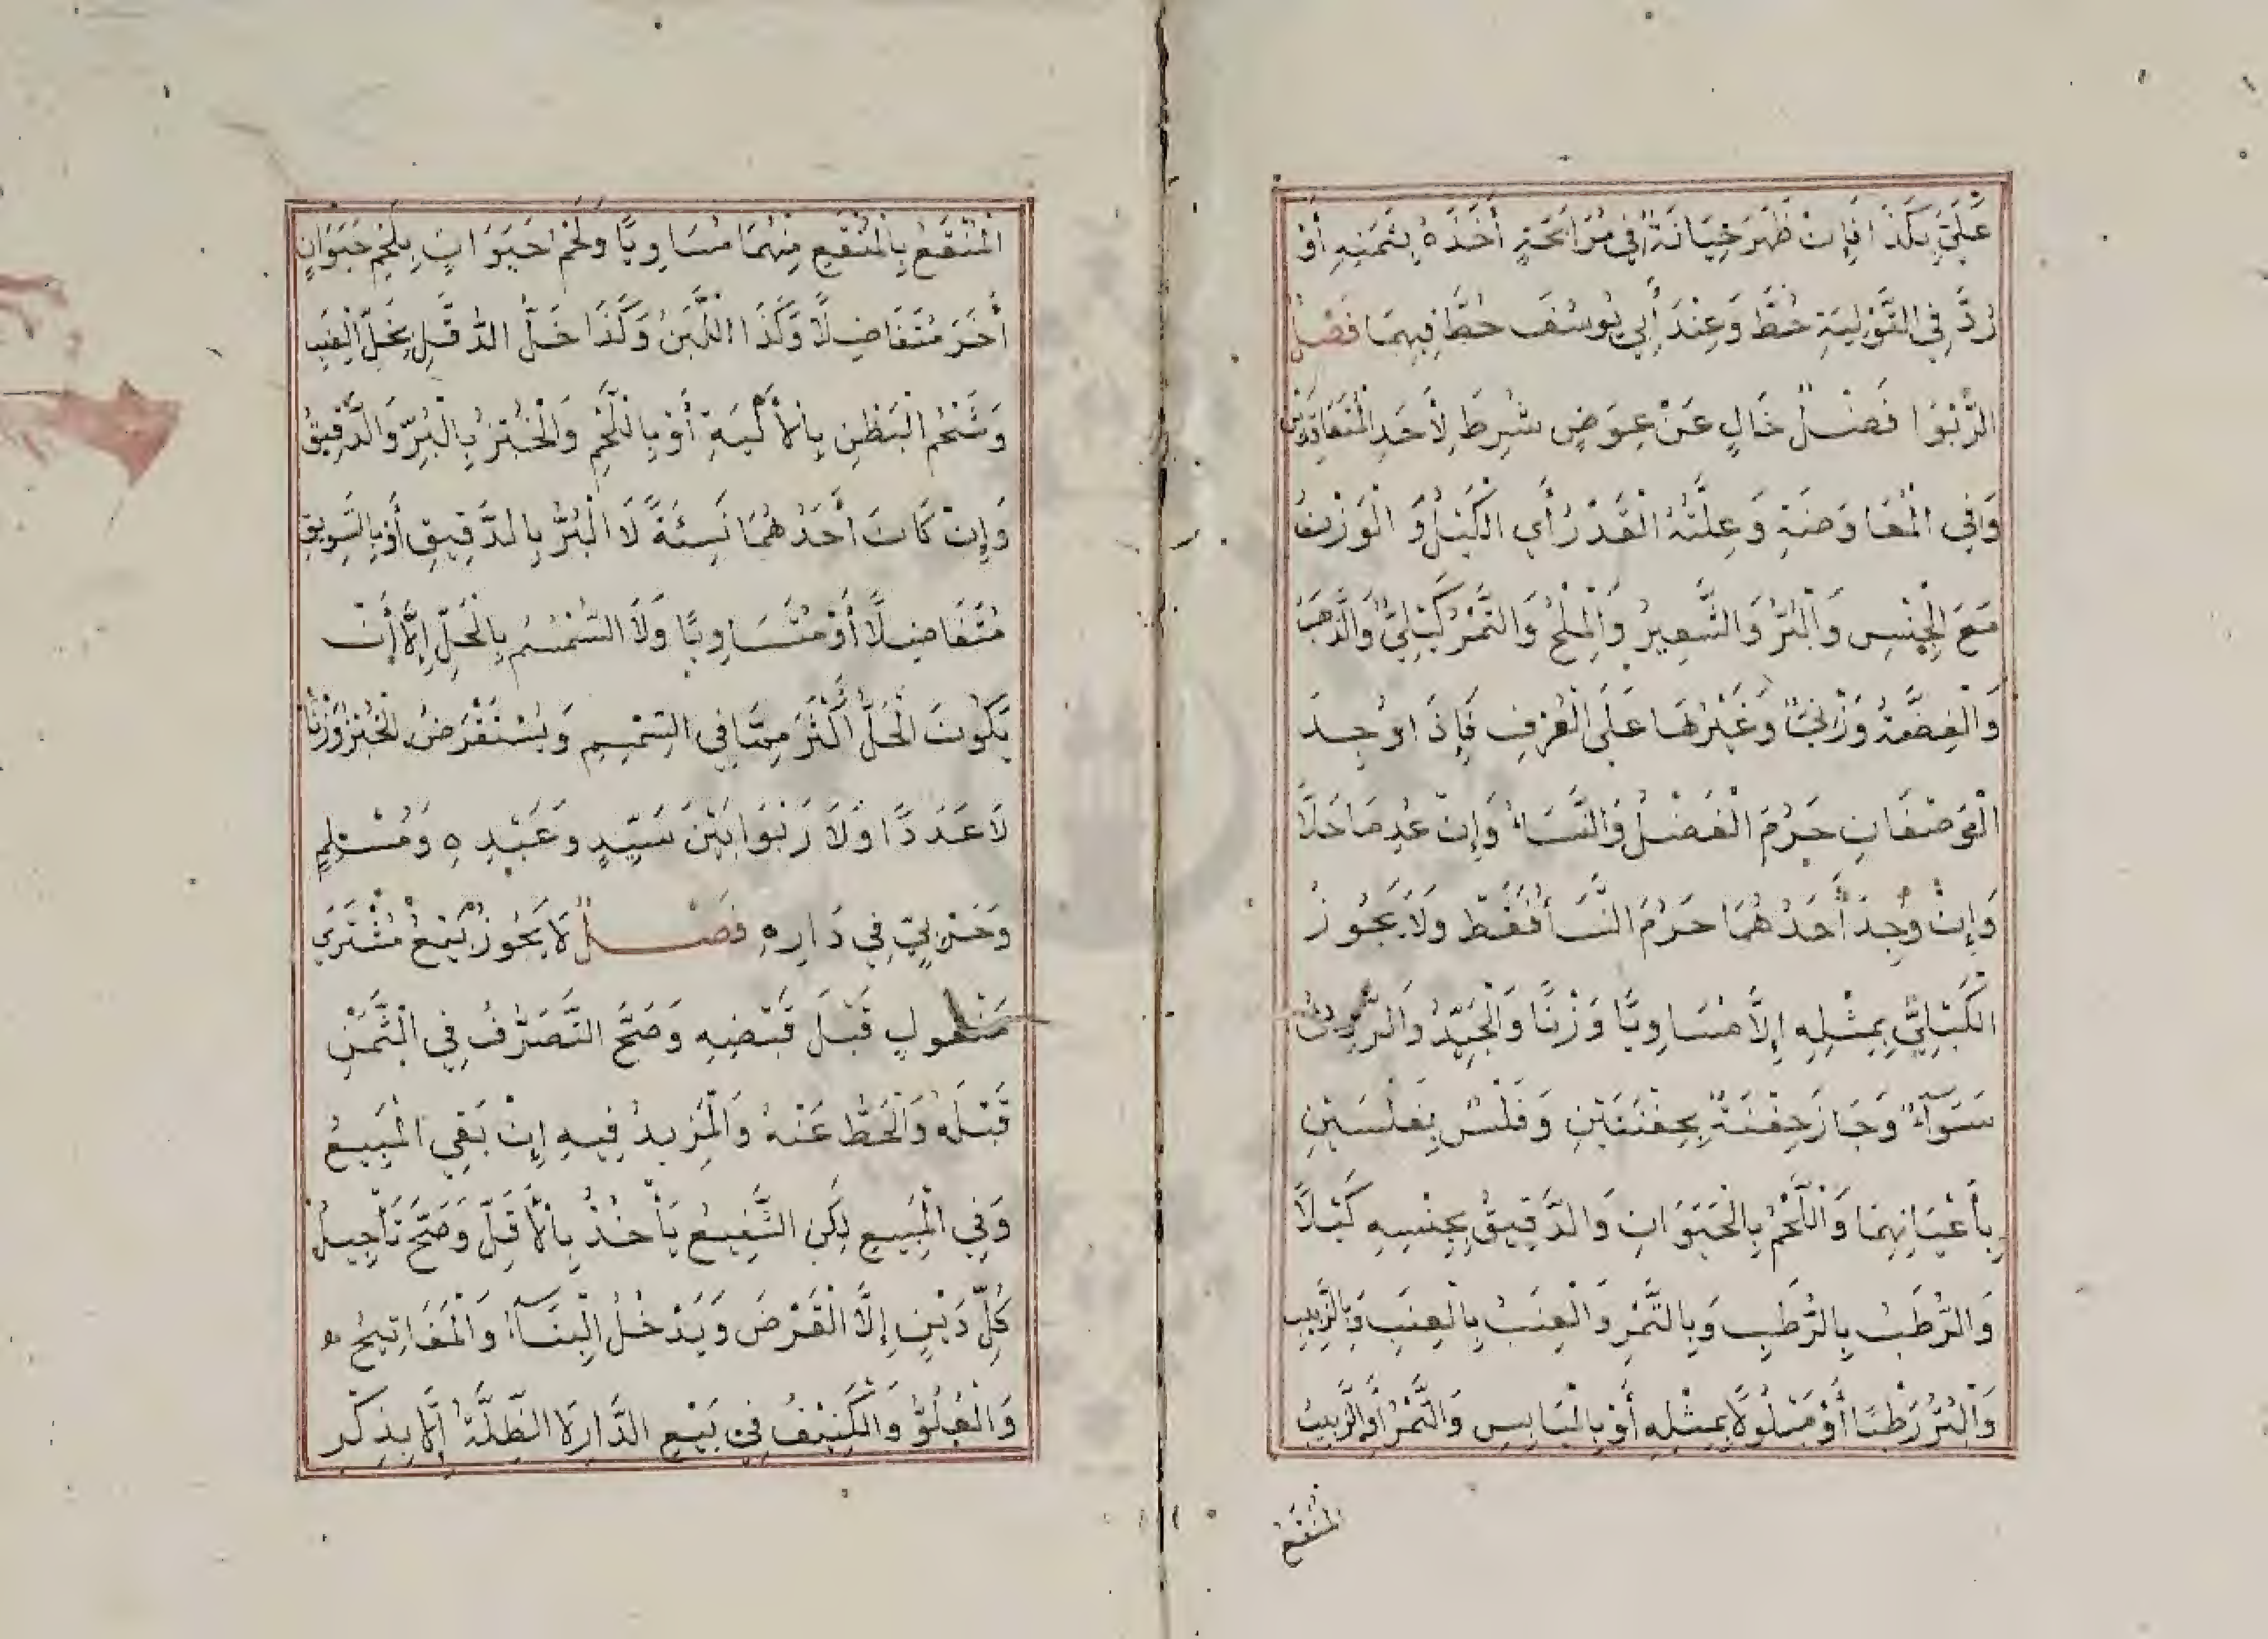 عَلَيَّ بِكَذَا فَإِنْ ظَهَرَ خِيَانَةٌ فِي مُرَابَحَةٍ أَخَذَهُ بِثَمَنِهِ أَوْ
رُدَّ فِي التَّوْلِيَةِ حُطَّ وَعِنْدَ أَبِي يُوسُفَ حُطَّ فِيهِمَا فَصْلٌ
الرِّبٰوا فَضْلٌ خَالٍ عَنْ عِوَضٍ شُرِطَ لِأَحَدِ الْمُتَعَاقِدَيْنِ
وَفِي الْمُعَاوَضَةِ وَعِلَّتُهُ الْقَدْرُ أَيِ الْكَيْلُ وَالْوَزْنُ
مَعَ الْجِنْسِ وَالْبُرُّ وَالشَّعِيرُ وَالْمِلْحُ وَالتَّمْرُ كَيْلِيٌّ وَالذَّهَبُ
وَالْفِضَّةُ وَزْنِيٌّ وَغَيْرُهَا عَلَى الْعُرْفِ فَإِذَا وُجِدَ
الْوَصْفَانِ حَرُمَ الْفَضْلُ وَالنَّسَاءُ وَإِنْ عُدِمَا حَلَّا
وَإِنْ وُجِدَ أَحَدُهُمَا حَرُمَ النَّسَأُ فَقَطْ وَلَا يَجُوزُ
الْكَيْلِيُّ بِمِثْلِهِ إِلَّا مُسَاوِيًا وَزْنًا وَالْجَيِّدُ وَالرَّدِيُّ
سَوَآءٌ وَجَازَ حِفْنَةٌ بِحِفْنَتَيْنِ وَفَلْسٌ بِفَلْسَيْنِ
بِأَعْيَانِهِمَا وَاللَّحْمُ بِالْحَيَوَانِ وَالدَّقِيقُ بِجِنْسِهِ كَيْلًا
وَالرُّطَبُ بِالرُّطَبِ وَبِالتَّمْرِ وَالْعِنَبُ بِالْعِنَبِ وَبِالزَّبِيبِ
وَالْبُرُّ رَطْبًا أَوْ مَبْلُولًا بِمِثْلِهِ أَوْ بِالْيَابِسِ وَالتَّمْرُ أَوِ الزَّبِيبُ
الْمُنْقَعُ
الْمُنْقَعُ بِالْمُنْقَعِ مِنْهُمَا مُسَاوِيًا وَلَحْمُ حَيَوَانٍ بِلَحْمِ حَيَوَانٍ
أَخَرَ مُتَفَاضِلًا وَكَذَا اللَّبَنُ وَكَذَا خَلُّ الدَّقَلِ بِخَلِّ الْعِنَبِ
وَشَحْمُ الْبَطْنِ بِالْأَلْيَةِ أَوْ بِاللَّحْمِ وَالْخُبْزُ بِالْبُرِّ وَالدَّقِيقُ
وَإِنْ كَانَ أَحَدُهُمَا نَسِئَةً لَا الْبُرُّ بِالدَّقِيقِ أَوْ بِالسَّوِيقِ
مُتَفَاضِلًا أَوْ مُتَسَاوِيًا وَلَا السِّمْسِمُ بِالْحَلِّ إِلَّا أَنْ
يَكُونَ الْحَلُّ أَكْثَرَ مِمَّا فِي السِّمْسِمِ وَيُسْتَقْرَضُ الْخُبْزُ وَزْنًا
لَا عَدَدًا وَلَا رِبٰوا بَيْنَ سَيِّدٍ وَعَبْدِهِ وَمُسْلِمٍ
وَحَرْبِيٍّ فِي دَارِهِ فَصْلٌ لَا يَجُوزُ بَيْعُ مُشْتَرَيٍ
مَنْقُولٍ قَبْلَ قَبْضِهِ وَصَحَّ التَّصَرُّفُ فِي الثَّمَنِ
قَبْلَهُ وَالْحَطُّ عَنْهُ وَالْمَزِيدُ فِيهِ إِنْ بَقِيَ الْمَبِيعُ
وَفِي الْمَبِيعِ لَكِنِ الشَّفِيعُ يَأْخُذُ بِالْأَقَلِّ وَصَحَّ تَأْجِيلُ
كُلِّ دَيْنٍ إِلَّا الْقَرْضَ وَيَدْخُلُ الْبِنَآءُ وَالْمَفَاتِيحُ
وَالْعُلُوُّ وَالْكَنِيفُ فِي بَيْعِ الدَّارِ لَا الظُّلَّةُ إِلَّا بِذِكْرِ